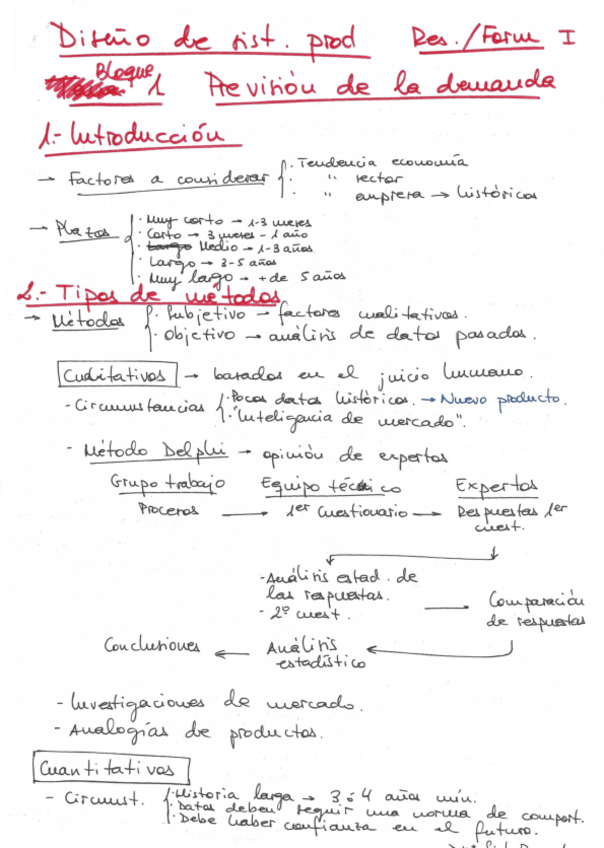 Diseño de sist. prod Res./Form I
Bloque 1 Previsión de la demanda
1.- Introducción
→ Factores a considerar { · Tendencia economía
· " sector
· " empresa → históricos
→ Plazos { · Muy corto → 1-3 meses
· Corto → 3 meses - 1 año
· Medio → 1-3 años
· Largo → 3-5 años
· Muy largo → + de 5 años
2.- Tipos de métodos
→ Métodos { · Subjetivo → factores cualitativos.
· Objetivo → análisis de datos pasados.
Cualitativos → basados en el juicio humano.
- Circunstancias { · Pocos datos históricos. → Nuevo producto.
· "Inteligencia de mercado".
- Método Delphi → opinión de expertos
Grupo trabajo Equipo técnico Expertos
Proceros → 1er Cuestionario → Respuestas 1er
cuest.
- Análisis estad. de
las respuestas.
- 2º cuest. → Comparación
de respuestas
Conclusiones ← Análisis
estadístico
- Investigaciones de mercado.
- Analogías de productos.
Cuantitativos
- Circunst. { · Historia larga → 3 ó 4 años mín.
· Datos deben seguir una norma de comport.
· Debe haber confianza en el futuro.